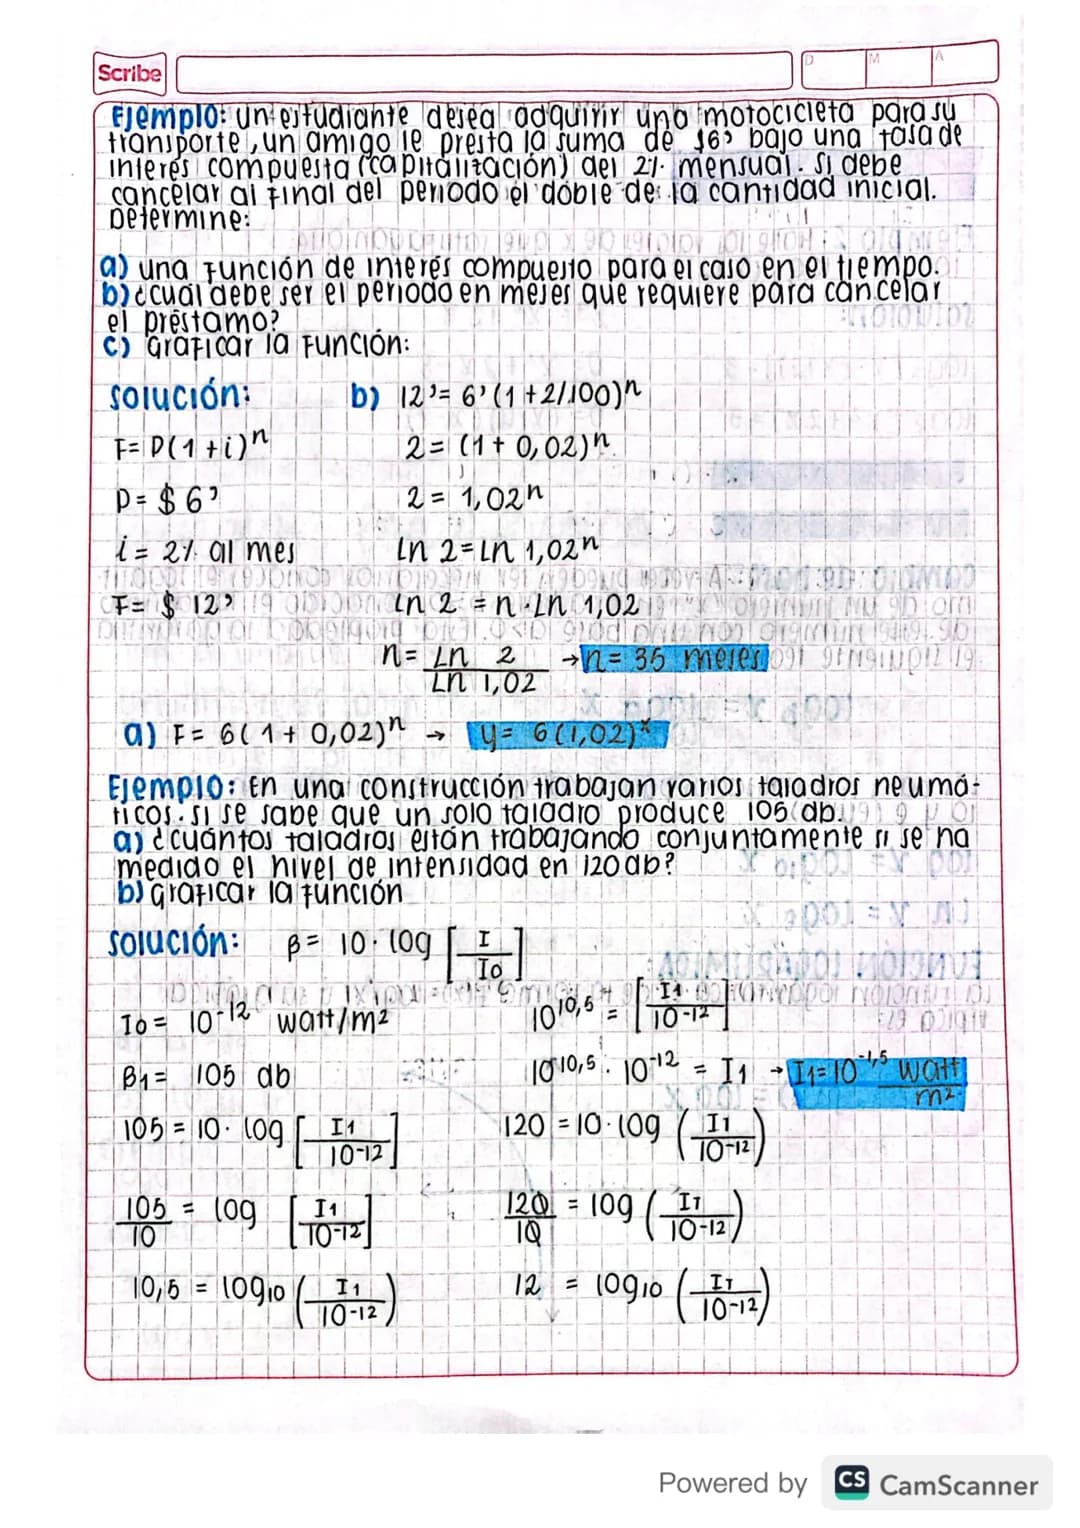 Scribe
D M A
Ejemplo: un estudiante desea adquirir una motocicleta para su
transporte, un amigo le presta la suma de $6' bajo una tasa de
interés compuesta (capitalización) del 2% mensual. si debe
cancelar al final del periodo el doble de la cantidad inicial.
Determine:
a) una función de interés compuesto para el caso en el tiempo.
b) ¿cuál debe ser el periodo en meses que requiere para cancelar
el préstamo?
c) Graficar la función:
solución:
F= P(1+i)^n
P= $6'
i= 2% al mes
F= $12'
b) 12'= 6'(1+2/100)^n
2= (1+0,02)^n
2= 1,02^n
Ln 2=Ln 1,02^n
Ln 2 = n·Ln 1,02
n= Ln 2 / Ln 1,02 → n= 35 meses
a) F= 6(1+0,02)^n → y= 6(1,02)^x
Ejemplo: En una construcción trabajan varios taladros neumá-
ticos. si se sabe que un solo taladro produce 105 db.
a) ¿cuántos taladros están trabajando conjuntamente si se ha
medido el nivel de intensidad en 120 db?
b) graficar la función
solución: β= 10· log [I / Io]
Io= 10^-12 watt/m²
β1= 105 db
105 = 10· log [I1 / 10^-12]
105/10 = log [I1 / 10^-12]
10,5 = log10 (I1 / 10^-12)
10^10,5 = [I1 / 10^-12]
10^10,5 · 10^-12 = I1 → I1= 10^-1,5 watt/m²
120 = 10·log (IT / 10^-12)
120/10 = log (IT / 10^-12)
12 = log10 (IT / 10^-12)
Powered by CS CamScanner